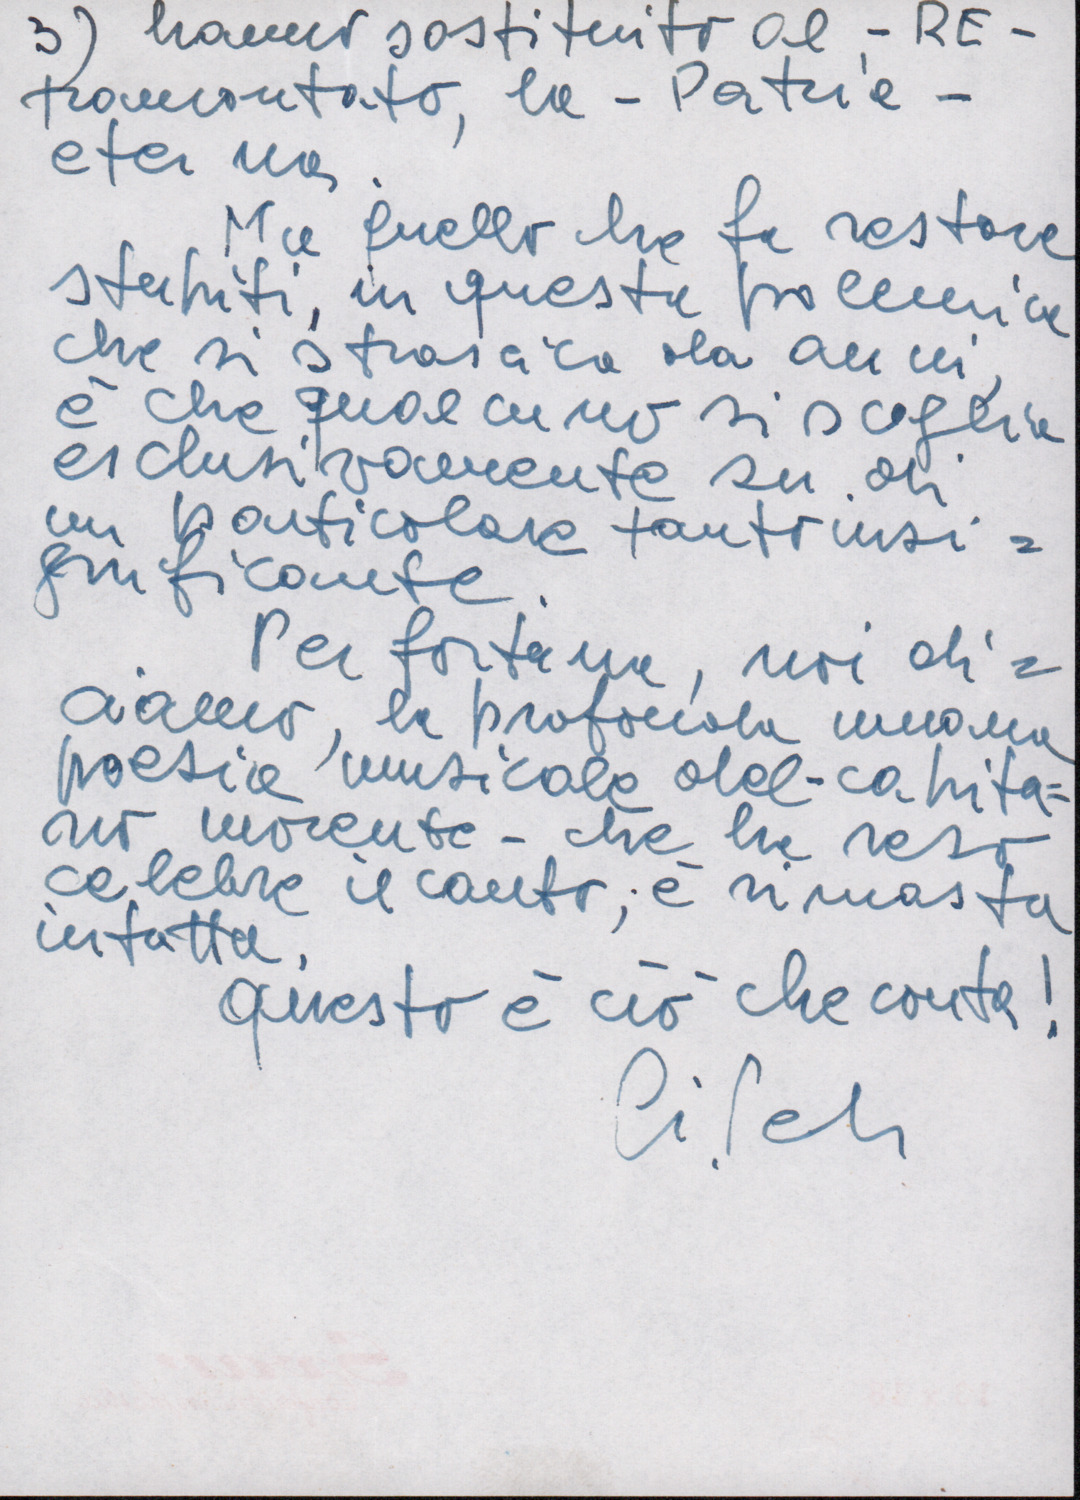 3) hanno sostituito al - RE -
tramontato, la - Patria -
eterna.
Ma quello che fa restare
stupiti, in questa polemica
che si strascica da anni,
è che qualcuno si scaglia
esclusivamente su di
un particolare tanto insi=
gnificante.
Per fortuna, noi di=
ciamo, la profonda umana
poesia musicale del - capita=
no morente - che ha reso
celebre il canto, è rimasta
intatta.
Questo è ciò che conta!